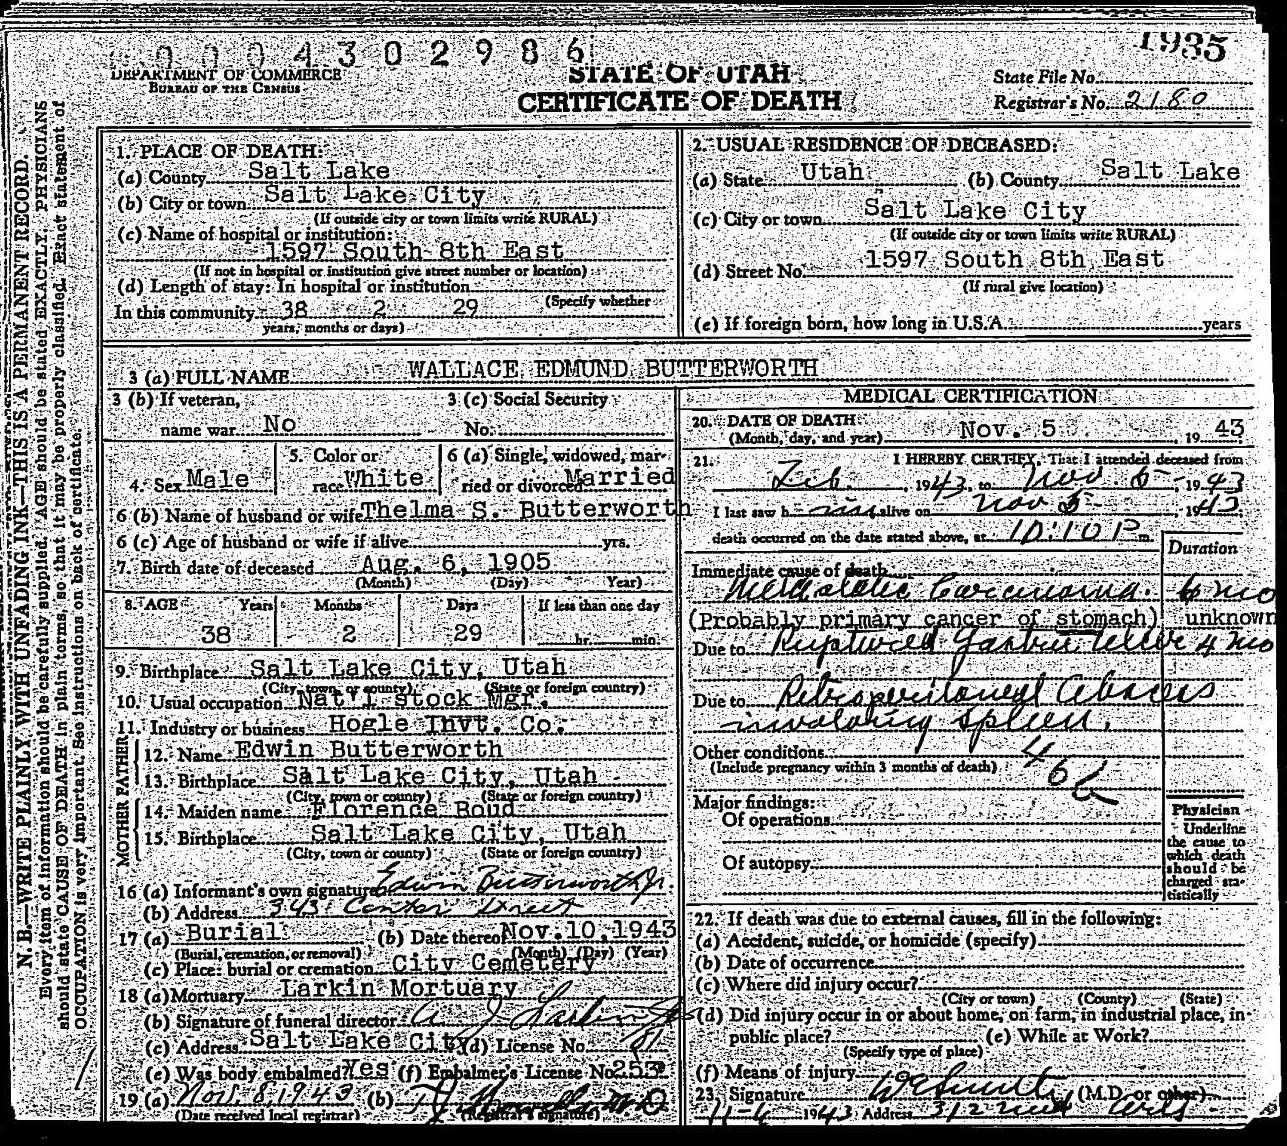 0 0 0 4 3 0 2 9 8 6
1935
DEPARTMENT OF COMMERCE
BUREAU OF THE CENSUS
STATE OF UTAH
CERTIFICATE OF DEATH
State File No.
Registrar's No. 2180
N. B.—WRITE PLAINLY WITH UNFADING INK—THIS IS A PERMANENT RECORD.
Every item of information should be carefully supplied. AGE should be stated EXACTLY. PHYSICIANS
should state CAUSE OF DEATH in plain terms, so that it may be properly classified. Exact statement of
OCCUPATION is very important. See instructions on back of certificate.
1. PLACE OF DEATH:
(a) County Salt Lake
(b) City or town Salt Lake City
(If outside city or town limits write RURAL)
(c) Name of hospital or institution:
1597 South 8th East
(If not in hospital or institution give street number or location)
(d) Length of stay: In hospital or institution
(Specify whether
In this community 38 2 29
years, months or days)
2. USUAL RESIDENCE OF DECEASED:
(a) State Utah (b) County Salt Lake
(c) City or town Salt Lake City
(If outside city or town limits write RURAL)
(d) Street No. 1597 South 8th East
(If rural give location)
(e) If foreign born, how long in U.S.A. years
3 (a) FULL NAME WALLACE EDMUND BUTTERWORTH
3 (b) If veteran,
name war No
3 (c) Social Security
No.
4. Sex Male
5. Color or
race White
6 (a) Single, widowed, mar-
ried or divorced Married
6 (b) Name of husband or wife Thelma S. Butterworth
6 (c) Age of husband or wife if alive yrs.
7. Birth date of deceased Aug. 6, 1905
(Month) (Day) Year)
8. AGE Years Months Days If less than one day
38 2 29 hr. min.
9. Birthplace Salt Lake City, Utah
(City, town or county) (State or foreign country)
10. Usual occupation Nat'l stock Mgr.
11. Industry or business Hogle Invt. Co.
FATHER
12. Name Edwin Butterworth
13. Birthplace Salt Lake City, Utah
(City, town or county) (State or foreign country)
MOTHER
14. Maiden name Florence Boud
15. Birthplace Salt Lake City, Utah
(City, town or county) (State or foreign country)
16 (a) Informant's own signature Edwin Butterworth Jr.
(b) Address 343 Center Street
17 (a) Burial (b) Date thereof Nov. 10, 1943
(Burial, cremation, or removal) (Month) (Day) (Year)
(c) Place: burial or cremation City Cemetery
18 (a) Mortuary Larkin Mortuary
(b) Signature of funeral director A J Larkin
(c) Address Salt Lake City (d) License No. 81
(e) Was body embalmed? Yes (f) Embalmer's License No. 253
19 (a) Nov. 8, 1943 (b) M D
(Date received local registrar) (Registrar's signature)
MEDICAL CERTIFICATION
20. DATE OF DEATH
(Month, day, and year) Nov. 5 19 43
21. I HEREBY CERTIFY, That I attended deceased from
Feb. , 1943, to Nov 5 1943
I last saw him alive on Nov 5 , 1943
death occurred on the date stated above, at 10:10 P m.
Duration
Immediate cause of death
Metastatic Carcinoma. 6 mo
(Probably primary cancer of stomach) unknown
Due to Ruptured Gastric Ulcer 4 mo
Due to Retroperitoneal Abscess
involving spleen.
Other conditions
(Include pregnancy within 3 months of death)
46b
Major findings:
Of operations
Of autopsy
Physician
Underline
the cause to
which death
should be
charged sta-
tistically
22. If death was due to external causes, fill in the following:
(a) Accident, suicide, or homicide (specify)
(b) Date of occurrence
(c) Where did injury occur?
(City or town) (County) (State)
(d) Did injury occur in or about home, on farm, in industrial place, in
public place? (e) While at Work?
(Specify type of place)
(f) Means of injury
23. Signature (M.D. or other)
11-6 1943 Address 312